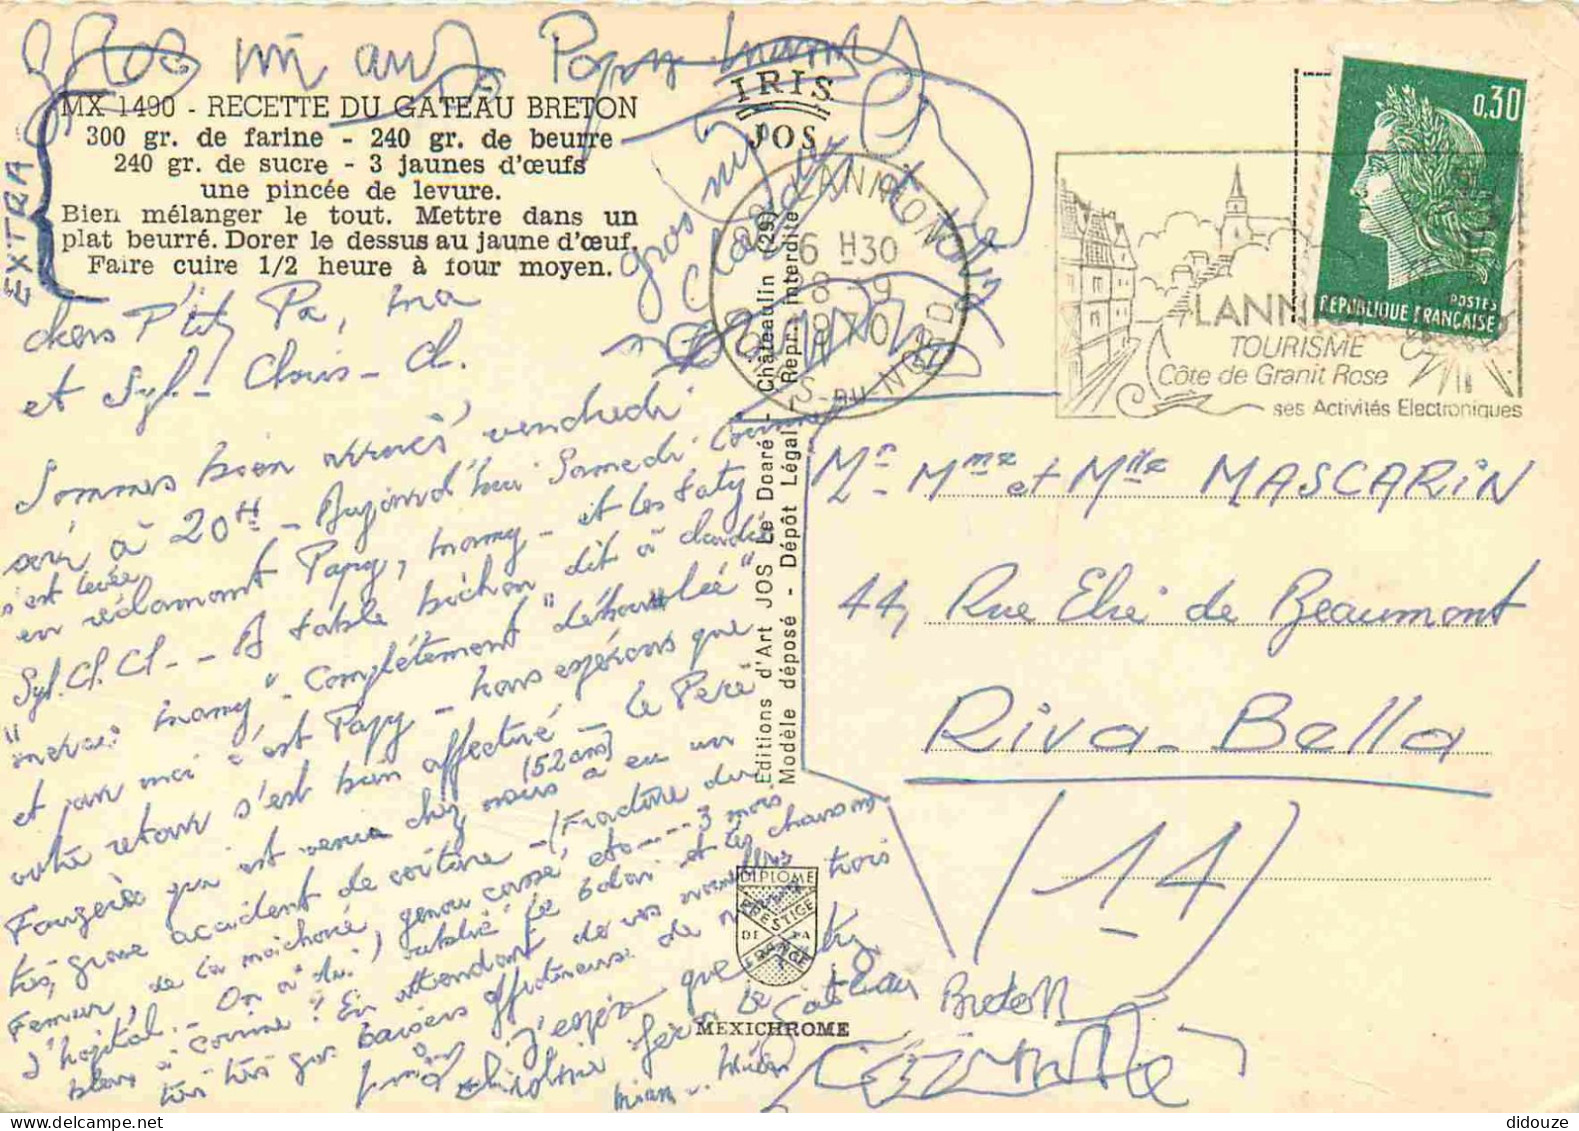 MX 1490 - RECETTE DU GATEAU BRETON
300 gr. de farine - 240 gr. de beurre
240 gr. de sucre - 3 jaunes d'œufs
une pincée de levure.
Bien mélanger le tout. Mettre dans un
plat beurré. Dorer le dessus au jaune d'œuf.
Faire cuire 1/2 heure à four moyen.
EXTRA
IRIS
JOS
chers P'tit Pa, ma
et Syl. Chris - Cl.
Sommes bien arrivés vendredi
soir à 20H - Aujourd'hui Samedi Corinne
s'est levée
en réclamant Papy, mamy - et les taty
Syl. Ch. Cl - - A table bichon dit à claudie
"merci mamy" - Complètement "déboussolée"
et pour moi c'est Papy - nous espérons que
votre retour s'est bien effectué - Le Père
Fougerès qui est venu chez nous (52 ans) a eu un
très grave accident de voiture - (Fracture du
Femur, de la machoire, genou cassé, etc --- 3 mois
d'hopital. - On a oublié le balai et les chaussons
blancs à Corinne! En attendant de vos nouvelles
très très gros baisers affectueux de nous trois
j'espère que
fera le Gateau Breton
miam - miam
Editions d'Art JOS Le Doaré - Châteaulin (29)
Modèle déposé - Dépôt Légal - Repr. interdite
DIPLOME
PRESTIGE
DE LA
FRANCE
MEXICHROME
LANNION
6 H30
8 - 9
1970
CÔTES-DU-NORD
LANNION
TOURISME
Côte de Granit Rose
ses Activités Electroniques
0,30
POSTES
REPUBLIQUE FRANÇAISE
Mr Mme et Mlle MASCARIN
44, Rue Elie de Beaumont
Riva-Bella
(14)
didouze